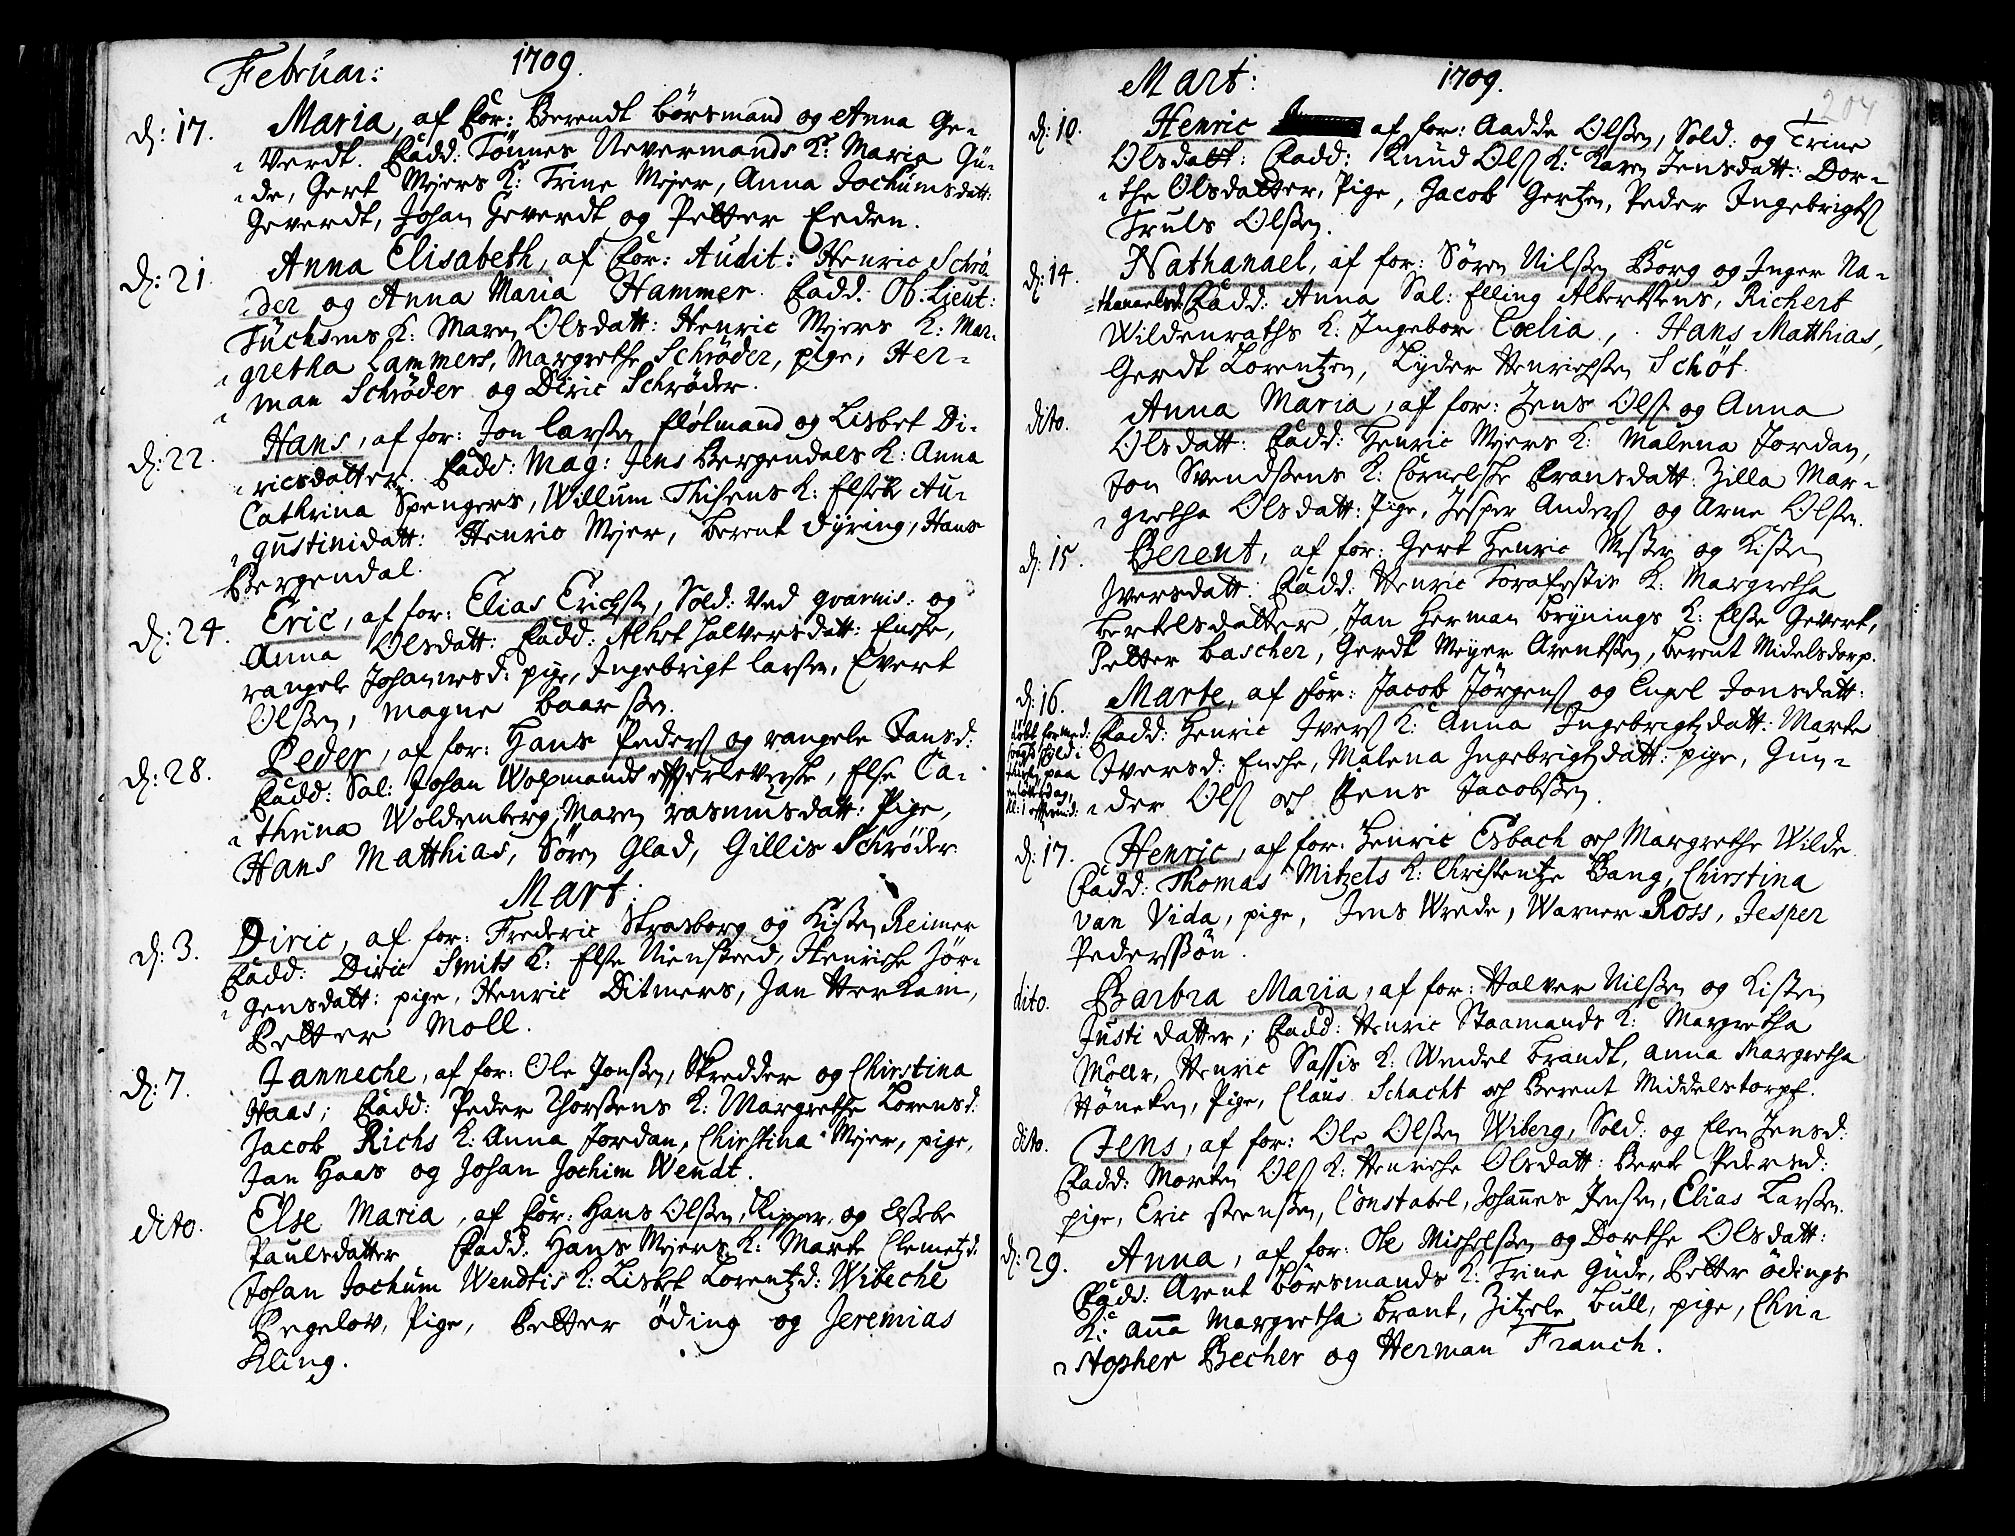 Februar: 1709.
d: 17. Maria, af for: Berendt börsmand og Anna Ge-
verdt. Fadd: Tönnes Uevermands K: Maria Gü-
de, Gert Mejers K: Trine Mejer, Anna Jochumsdatt:
Geverdt, Johan Geverdt og Petter Eeden.
d: 21. Anna Elisabeth, af for: Audit: Henric Schrö-
der og Anna Maria Hammer. Fadd: Ob: Lieut:
Füchsens K: Maren Olsdatt: Henric Mejers K: Mar-
gretha Lammers, Margrethe Schröder, pige, Her-
man Schröder og Diric Schröder.
d: 22. Hans, af for: Jon Larssen fløtmand og Lisbet Di-
ricsdatter. Fadd: Mag: Jens Bergendals K: Anna
Cathrina Spengers, Willum Thisens K: Else Au-
gustinidatt: Henric Mejer, berent dyring, Hans
Bergendal.
d: 24. Eric, af for: Elias Erichsen, Sold: ved qvarnis: og
Anna Olsdatt: Fadd: Alhet Halversdatt: Enche,
rangele Johannesd: pige, Ingebrigt Larssen, Evert
Olssen, Magne baarssen.
d: 28. Peder, af for: Hans Peders og rangele Jansd:
Fadd: Sal: Johan Wopmands efterleverske, Else Ca-
thrina Woldenberg, Maren rasmusdatt: Pige,
Hans Matthias, Sören Glad, Gillis Schröder
Mart:
d: 3. Diric, af for: Frederic Strasborg og Kisten Reimer
Fadd: Diric Smits K: Else Niensteed, Henriche Jör-
gensdatt: pige, Henric Ditmers, Jan Herkam,
Petter Moll.
d: 7. Janneche, af for: Ole Jonssen, Skredder og Chirstina
Haas; Fadd: Peder Thorssens K: Margrethe Lorensd:
Jacob Richs K: Anna Jordan, Chirstina Mejer, pige,
Jan Haas og Johan Jochim Wendt.
dito. Else Maria, af for: Hans Olssen, Skipper, og Elsebe
Paulsdatter Fadd: Hans Mejers K: Marte Clemetzd:
Johan Jochum Wendtis K: Lisbet Lorentzd: Wibeche
Pegelov, Pige, Petter öding og Jeremias
Kling.
Mart: 1709. 204
d: 10. Henric af for: Aadde Olssen, Sold: og Trine
Olsdatt: Fadd: Knud Ols K: Karen Jensdatt: Dor-
the Olsdatter, Pige, Jacob Gertzen, Peder Ingebrigts
Truls Olssen.
d: 14. Nathanael, af for: Søren Nilssen Borg og Inger Na-
thanaelsd: Fadd: Anna Sal: Elling Albertsens, Richert
Wildenraths K: Ingebor Coelia, Hans Matthias,
Gerdt Lorentzen, Lyder Henrichsen Schöt.
dito. Anna Maria, af for: Jens Ols og Anna
Olsdatt: Fadd: Henric Mejers K: Malena Jordan,
Jon Svendssens K: Cornelske Fransdatt: Zilla Mar-
gretha Olsdatt: Pige, Jesper Anders og Arne Olsen.
d: 15. Berent, af for: Gert Henric og Kisten
Iversdatt: Fadd: Henric K: Margretha
bertelsdatter, Jan Herman brynings K: Else Gevert,
Petter bascher, Gerdt Meyer Arentssen, berent Midelsdorp.
d: 16. Marte, af for: Jacob Jörgens og Engel Jonsdatt:
Fadd: Henric Ivers K: Anna Ingebrigtzdatt: Marte
Iversd: Enche, Malena Ingebrigtzdatt: pige, Gun-
der Ols och Jens Jacobssen.
d: 17. Henric, af for: Henric Esbach och Margrethe Wilde
Fadd: Thomas Mitzels K: Christentze Bang, Chirstina
van Vida, pige, Jens Wrede, Warner Ross, Jesper
Pederssön.
dito. Barbra Maria, af for: Halver Nilssen og Kisten
Justi datter; Fadd: Henric Staamands K: Margretha
Möller, Henric Sassis K: Wendel brandt, Anna Margretha
Höneken, Pige, Claus Schacht och Berent Middelstorpf.
dito. Jens, af for: Ole Olssen Wiberg, Sold: og Elen Jensd:
Fadd: Morten Ols K: Henriche Olsdatt: Berte Pedersd:
pige, Eric steenssen, Constabel, Johannes Jenssen, Elias Larssen.
d: 29. Anna, af for: Ole Michelssen og Dorthe Olsdatt:
Fadd: Arent börsmands K: Trine Gude, Petter ödings
K: Anna Margretha brant, Zitzele bull, pige, Chri-
stopher Becher og Herman Franch.